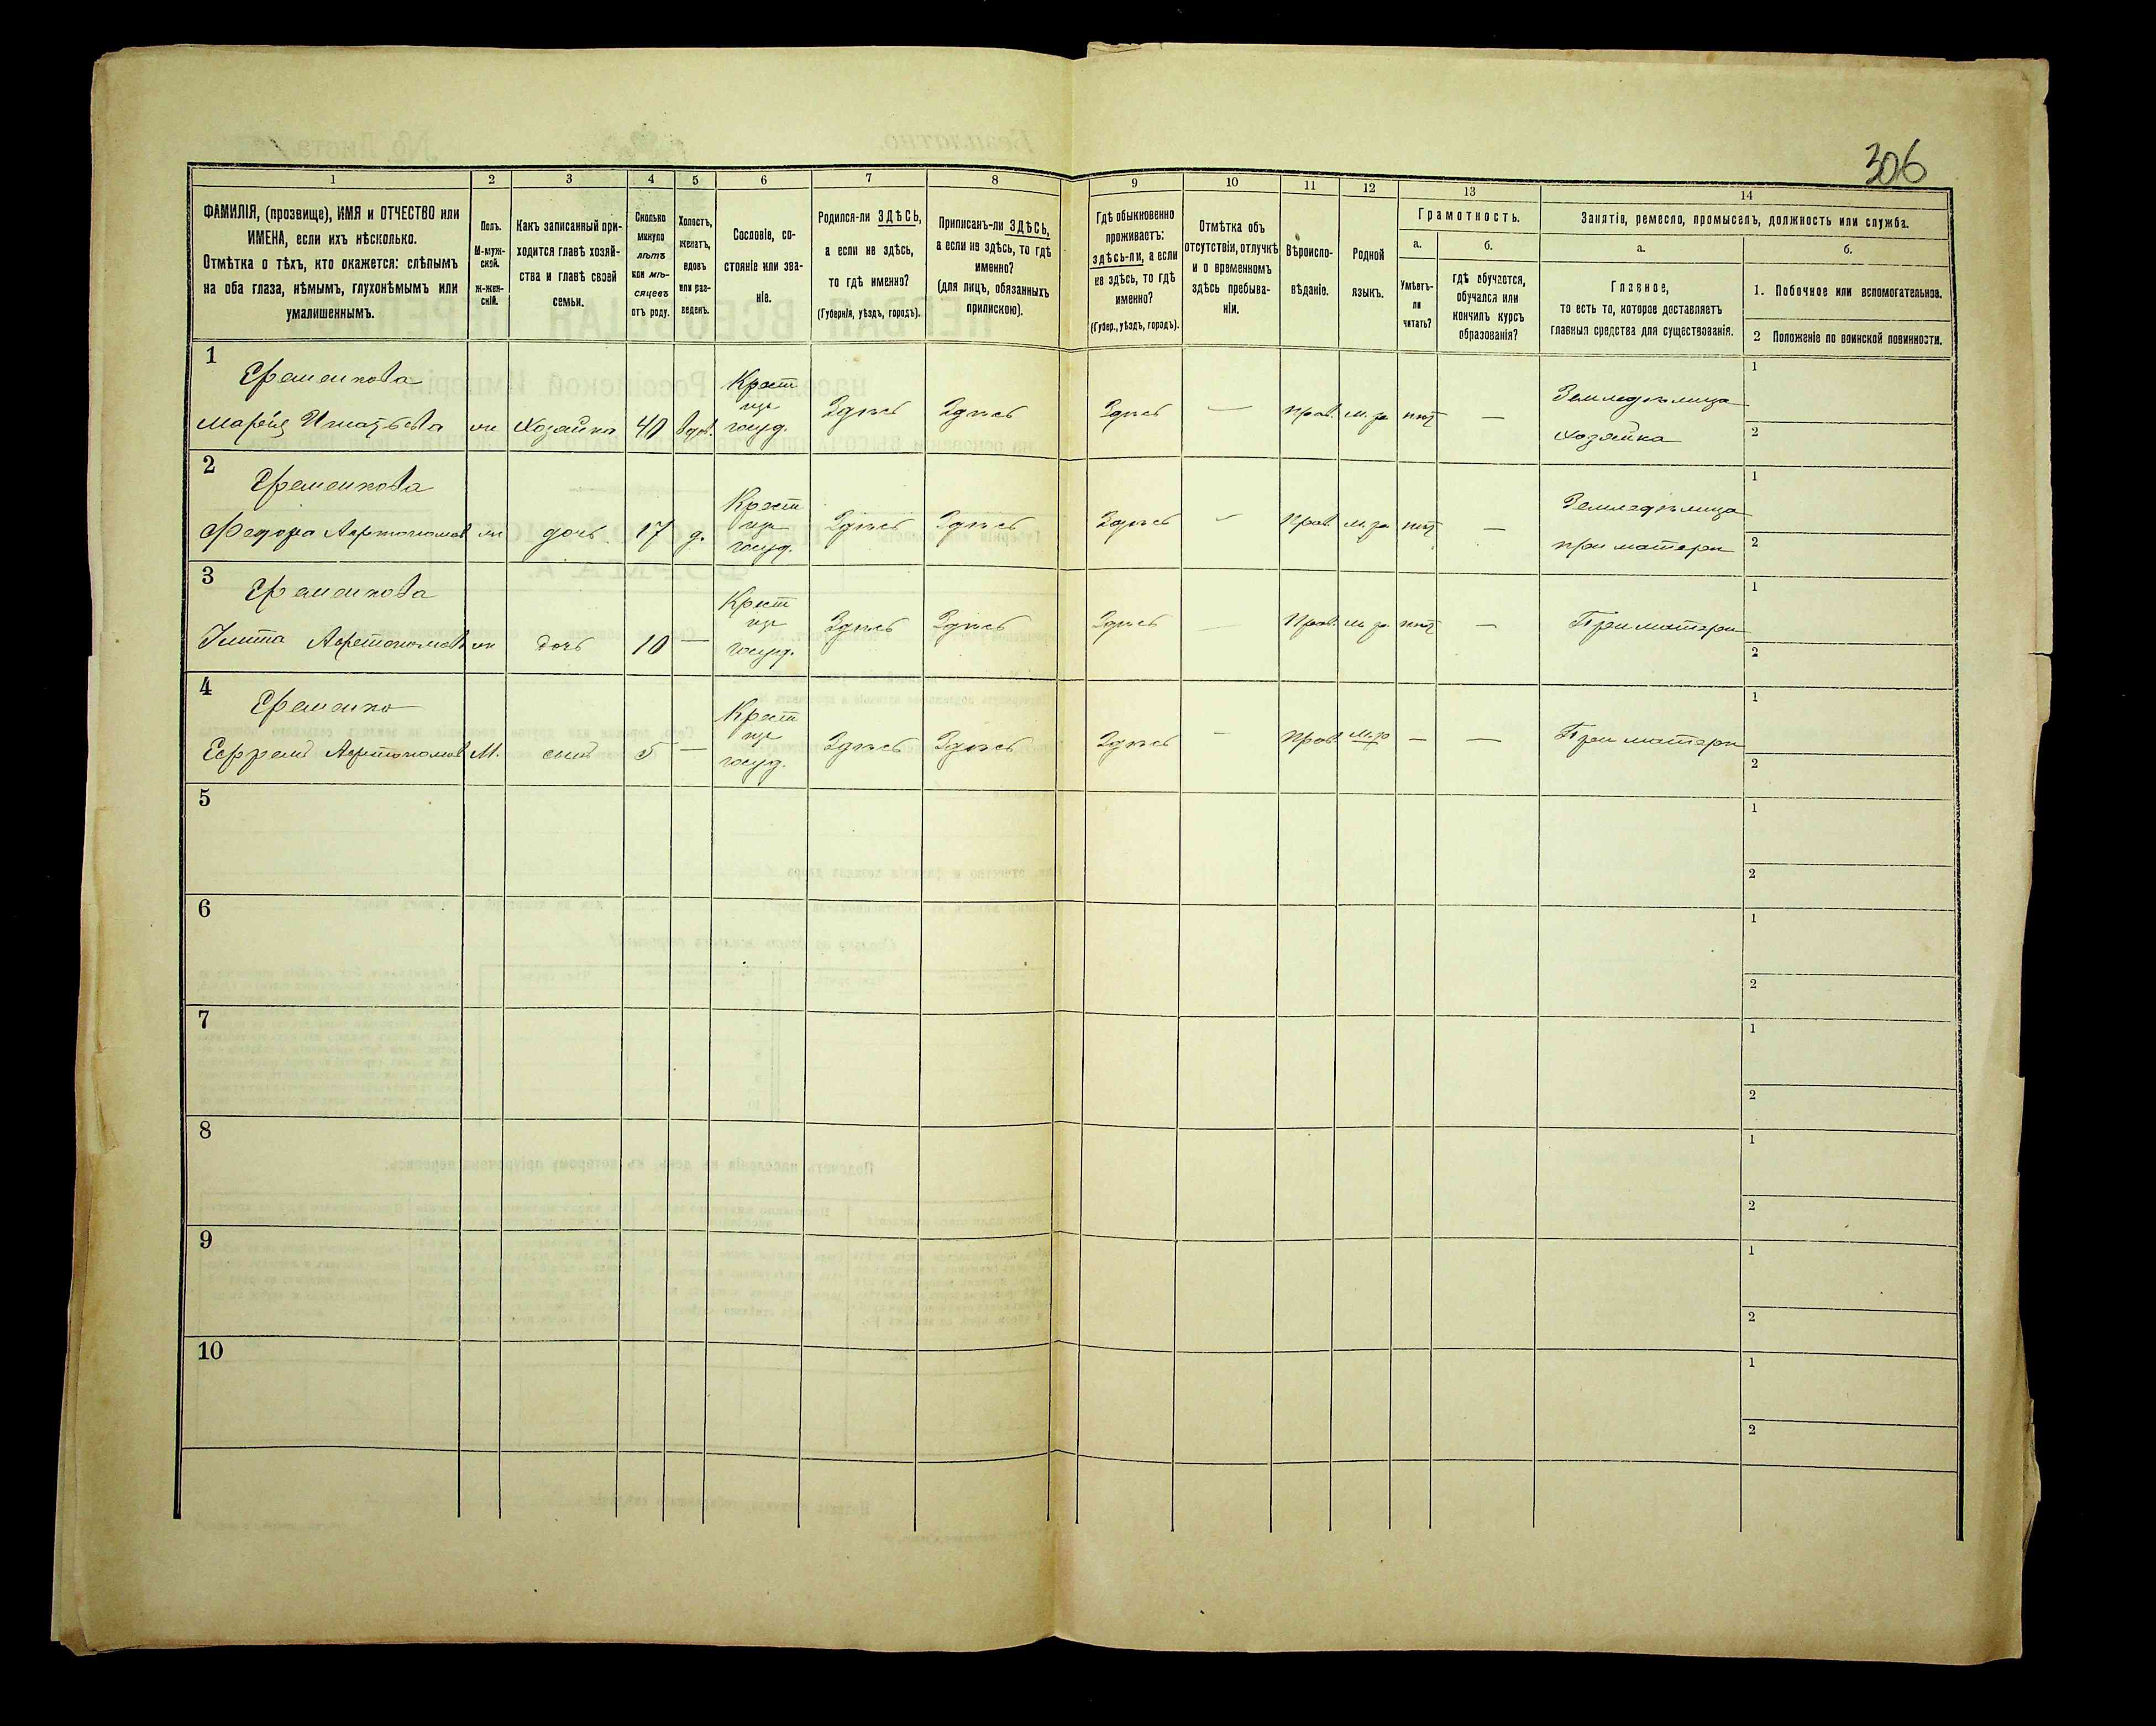 306
1 2 3 4 5 6 7 8 9 10 11 12 13 14
ФАМИЛІЯ, (прозвище), ИМЯ и ОТЧЕСТВО или
ИМЕНА, если ихъ нѣсколько.
Отмѣтка о тѣхъ, кто окажется: слѣпымъ
на оба глаза, нѣмымъ, глухонѣмымъ или
умалишеннымъ.
Полъ.
М-муж-
ской.
ж-жен-
скій.
Какъ записанный при-
ходится главѣ хозяй-
ства и главѣ своей
семьи.
Сколько
минуло
лѣтъ
или мѣ-
сяцевъ
отъ роду.
Холостъ,
женатъ,
вдовъ
или раз-
веденъ.
Сословіе, со-
стояніе или зва-
ніе.
Родился-ли ЗДѢСЬ,
а если не здѣсь,
то гдѣ именно?
(Губернія, уѣздъ, городъ).
Приписанъ-ли ЗДѢСЬ,
а если не здѣсь, то гдѣ
именно?
(для лицъ, обязанныхъ
припискою).
Гдѣ обыкновенно
проживаетъ:
здѣсь-ли, а если
не здѣсь, то гдѣ
именно?
(Губер., уѣздъ, городъ).
Отмѣтка объ
отсутствіи, отлучкѣ
и о временномъ
здѣсь пребыва-
ніи.
Вѣроиспо-
вѣданіе.
Родной
языкъ.
Грамотность.
а.
Умѣетъ-
ли
читать?
б.
гдѣ обучается,
обучался или
кончилъ курсъ
образованія?
Занятія, ремесло, промыселъ, должность или служба.
а.
Главное,
то есть то, которое доставляетъ
главныя средства для существованія.
б.
1. Побочное или вспомогательное.
2 Положеніе по воинской повинности.
1
Еременкова Крест Земледѣлица 1
ца
Марѳія Игнатьева ж Хозяйка 40 вдов. госуд. Здѣсь Здѣсь Здѣсь — прав. м. р. нѣт — хозяйка 2
2
Еременкова Крест Земледѣлица 1
ца
ж дочь 17 д. госуд. Здѣсь Здѣсь Здѣсь — прав. м. р. нѣт — при матери 2
3
Еременкова Крест 1
ца
ж дочь 10 — госуд. Здѣсь Здѣсь Здѣсь — Прав. м. р. нѣт — При матери 2
4
Еременко Крест 1
це
Ефремъ М. сынъ 5 — госуд. Здѣсь Здѣсь Здѣсь — прав. м. р. — — При матери 2
5 1
2
6 1
2
7 1
2
8 1
2
9 1
2
10 1
2